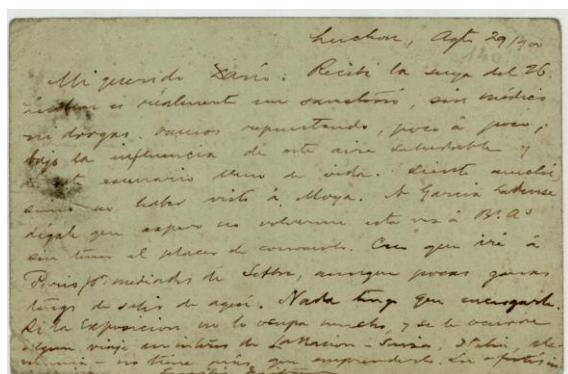 Luchon, Agto 29/900
Mi querido Darío: Recibí la suya del 26.
Luchon es realmente un sanatorio, sin médicos
ni drogas. Vamos repuntando, poco á poco,
bajo la influencia de este aire saludable y
de este escenario lleno de vida. Siento muchí
simo no haber visto á Moya. A García Ladevese
dígale que espero no volverme esta vez á Bs. As
sin tener el placer de conocerle. Creo que iré á
París pr. mediados de Setbre, aunque pocas ganas
tengo de salir de aquí. Nada tengo que encargarle.
Si la Exposición no lo ocupa mucho, y se le ocurre
algun viaje en interés de La Nación - Suiza, Italia, Ale
mania - no tiene más que emprenderlo. Su afectísimo